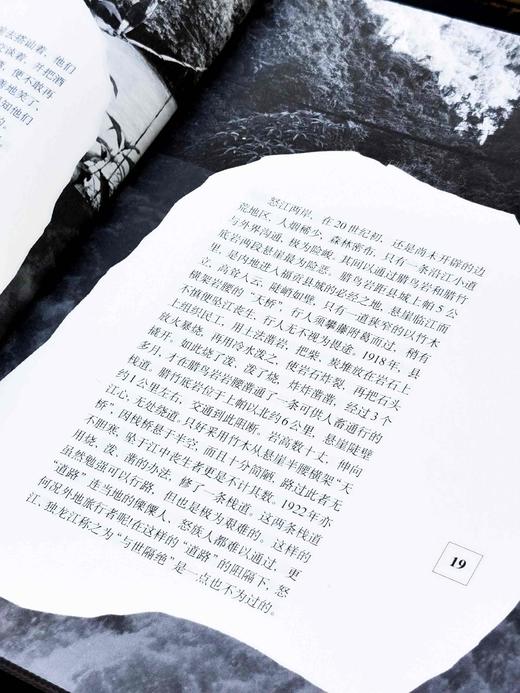 去搭讪着，他们
交谈着，并把酒
便不敢再
善地笑了，
知他们
的。
怒江两岸，在20世纪初，还是尚未开辟的边
荒地区，人烟稀少，森林密布，只有一条沿江小道
与外界沟通，极为险峻。其间以通过腊乌岩和腊竹
底岩两段悬崖最为险恶。腊乌岩距县城上帕5公
里，是内地进入福贡县城的必经之地，悬崖临江而
立，高耸入云，陡峭如壁，只有一道狭窄的以竹木
横架岩腰的“天桥”，行人须攀藤附葛而过，稍有
不慎便坠江丧生，行人无不视为畏途。1918年，县
上组织民工，用土法凿岩，把柴、炭堆放在岩石上
放火暴烧，再用冷水泼之，使岩石炸裂，再把石头
撬开。如此烧了泼、泼了烧，炸炸凿凿，经过3个
多月，才在腊乌岩岩腰凿通了一条可供人畜通行的
栈道。腊竹底岩位于上帕以北约6公里，悬崖陡壁
约1公里左右，交通到此阻断。岩高数十丈，伸向
江心，无处绕道。只好采用竹木从悬崖半腰横架“天
桥”，因栈桥悬于半空，而且十分简陋，路过此者无
不胆寒，坠于江中丧生者更是不计其数。1922年亦
用烧、泼、凿的办法，修了一条栈道。这两条栈道
虽然勉强可以行路，但也是极为艰难的。这样的
“道路”连当地的傈僳人、怒族人都难以通过，更
何况外地旅行者呢!在这样的“道路”的阻隔下，怒
江、独龙江称之为“与世隔绝”是一点也不为过的。
19